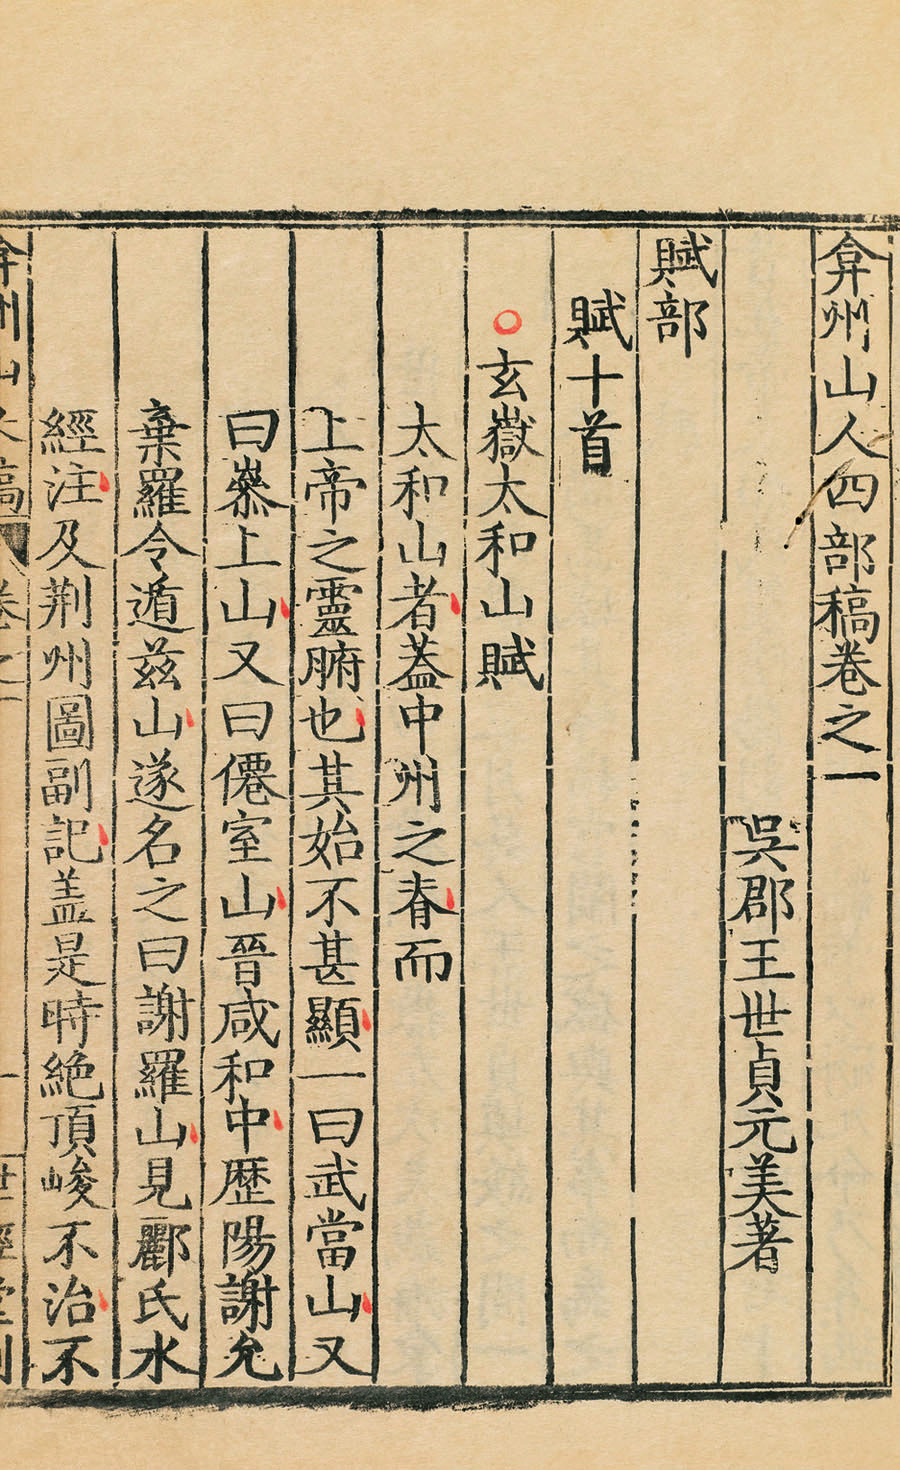 弇州山人四部稿卷之一
吳郡王世貞元美著
賦部
賦十首
玄嶽太和山賦
太和山者蓋中州之脊而
上帝之靈腑也其始不甚顯一曰武當山又
曰嵾上山又曰僊室山晉咸和中歷陽謝允
棄羅令遁茲山遂名之曰謝羅山見酈氏水
經注及荆州圖副記盖是時絶頂峻不治不
弇州山人稿 卷之一 一 世經堂刻